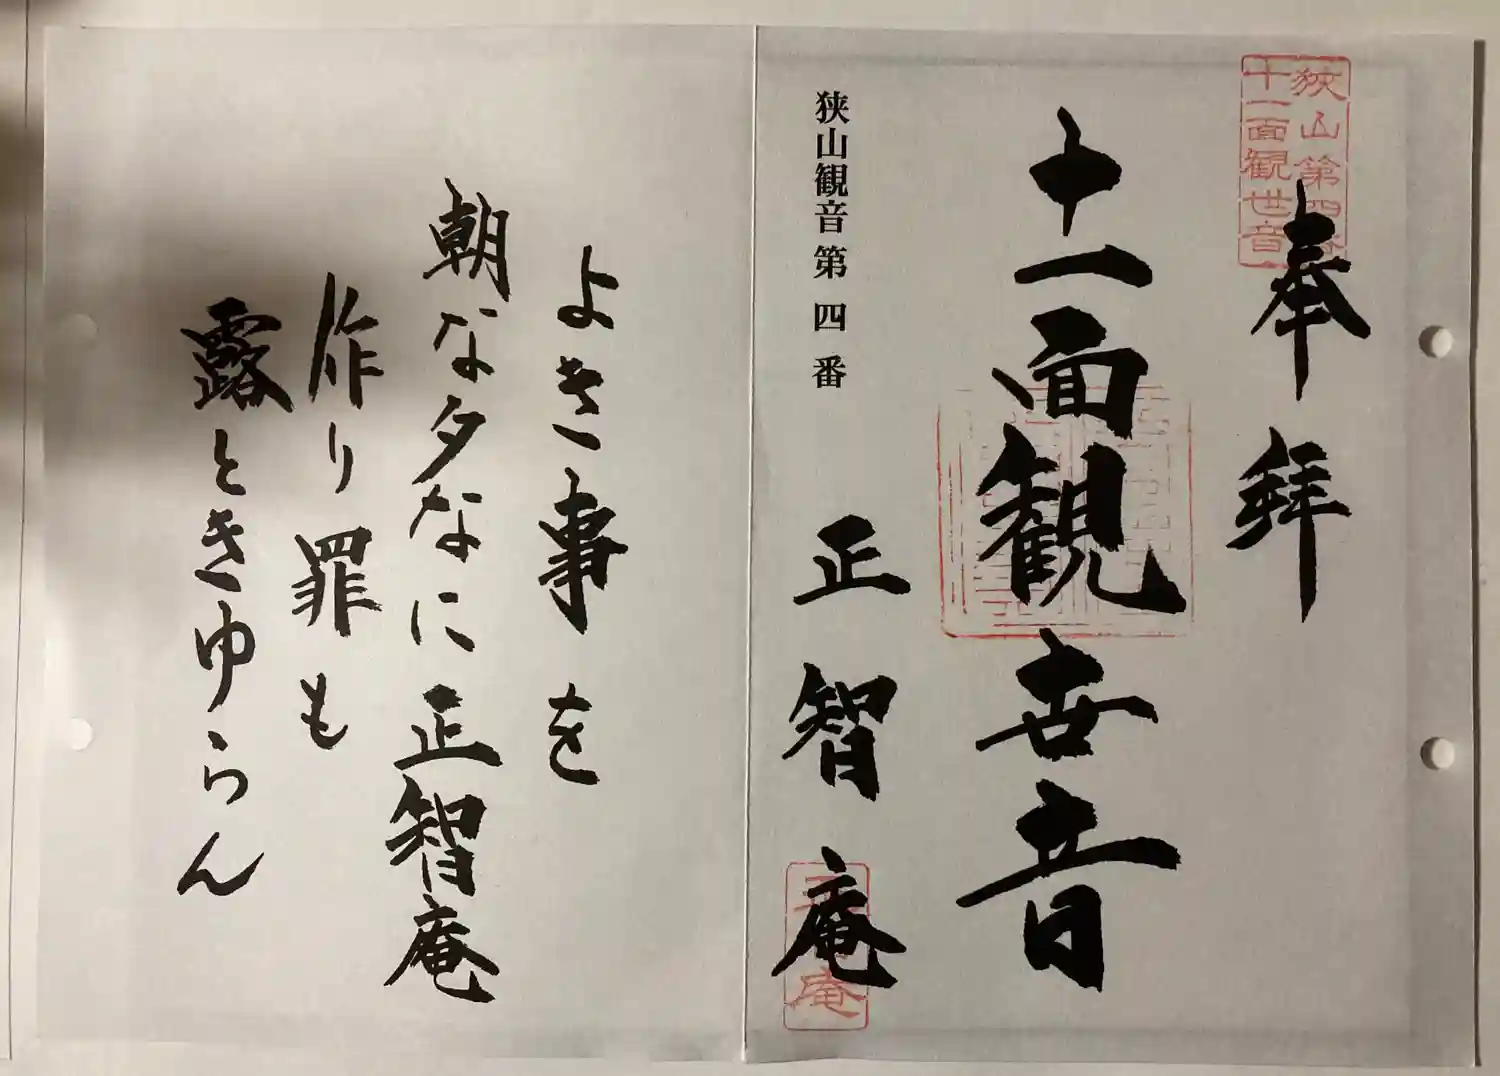 狭山第四番
十一面観世音
奉拝
十一面観世音
狭山観音第四番
正智庵
よき事を
朝な夕なに正智庵
作り罪も
露ときゆらん